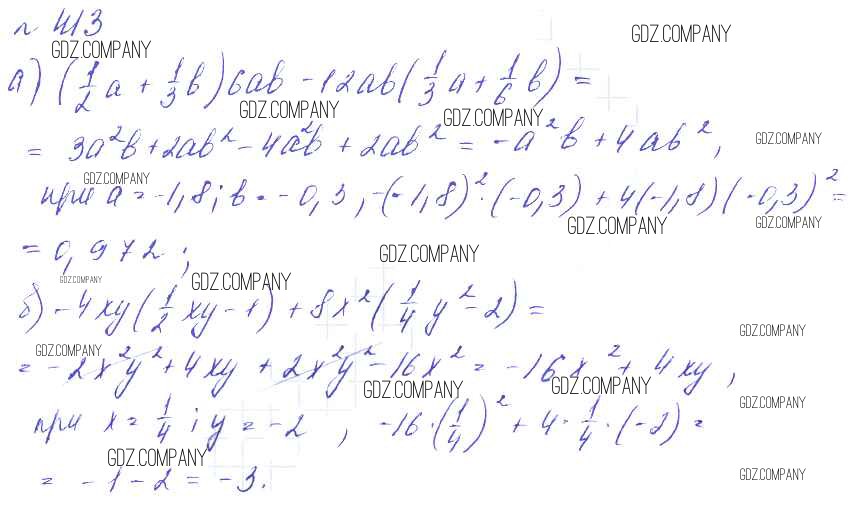 № 413
GDZ.COMPANY
GDZ.COMPANY
а) (1/2 a + 1/3 b) 6ab - 12ab (1/3 a + 1/6 b) =
GDZ.COMPANY
GDZ.COMPANY
= 3a²b + 2ab² - 4a²b + 2ab² = -a²b + 4ab²,
GDZ.COMPANY
GDZ.COMPANY
при a = -1,8; b = -0,3, -(-1,8)² · (-0,3) + 4(-1,8)(-0,3)² =
GDZ.COMPANY
GDZ.COMPANY
= 0,972;
GDZ.COMPANY
GDZ.COMPANY
GDZ.COMPANY
б) -4xy (1/2 xy - 1) + 8x² (1/4 y² - 2) =
GDZ.COMPANY
GDZ.COMPANY
= -2x²y² + 4xy + 2x²y² - 16x² = -16x² + 4xy,
GDZ.COMPANY
GDZ.COMPANY
GDZ.COMPANY
при x = 1/4; y = -2, -16 · (1/4)² + 4 · 1/4 · (-2) =
GDZ.COMPANY
GDZ.COMPANY
= -1 - 2 = -3.